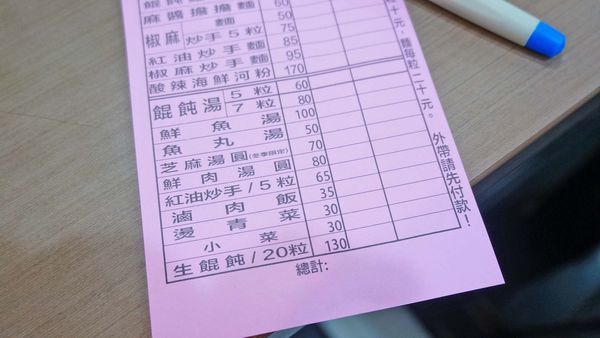 麻醬擔擔麵 50
椒麻炒手5粒 75
紅油炒手麵 85
椒麻炒手麵 95
酸辣海鮮河粉 170
餛飩湯 5粒 60
7粒 80
鮮魚湯 100
魚丸湯 50
芝麻湯圓(冬季限定) 70
鮮肉湯圓 80
紅油炒手/5粒 65
滷肉飯 35
燙青菜 30
小菜 30
生餛飩/20粒 130
總計:
十元，麵每粒二十元。
外帶請先付款！